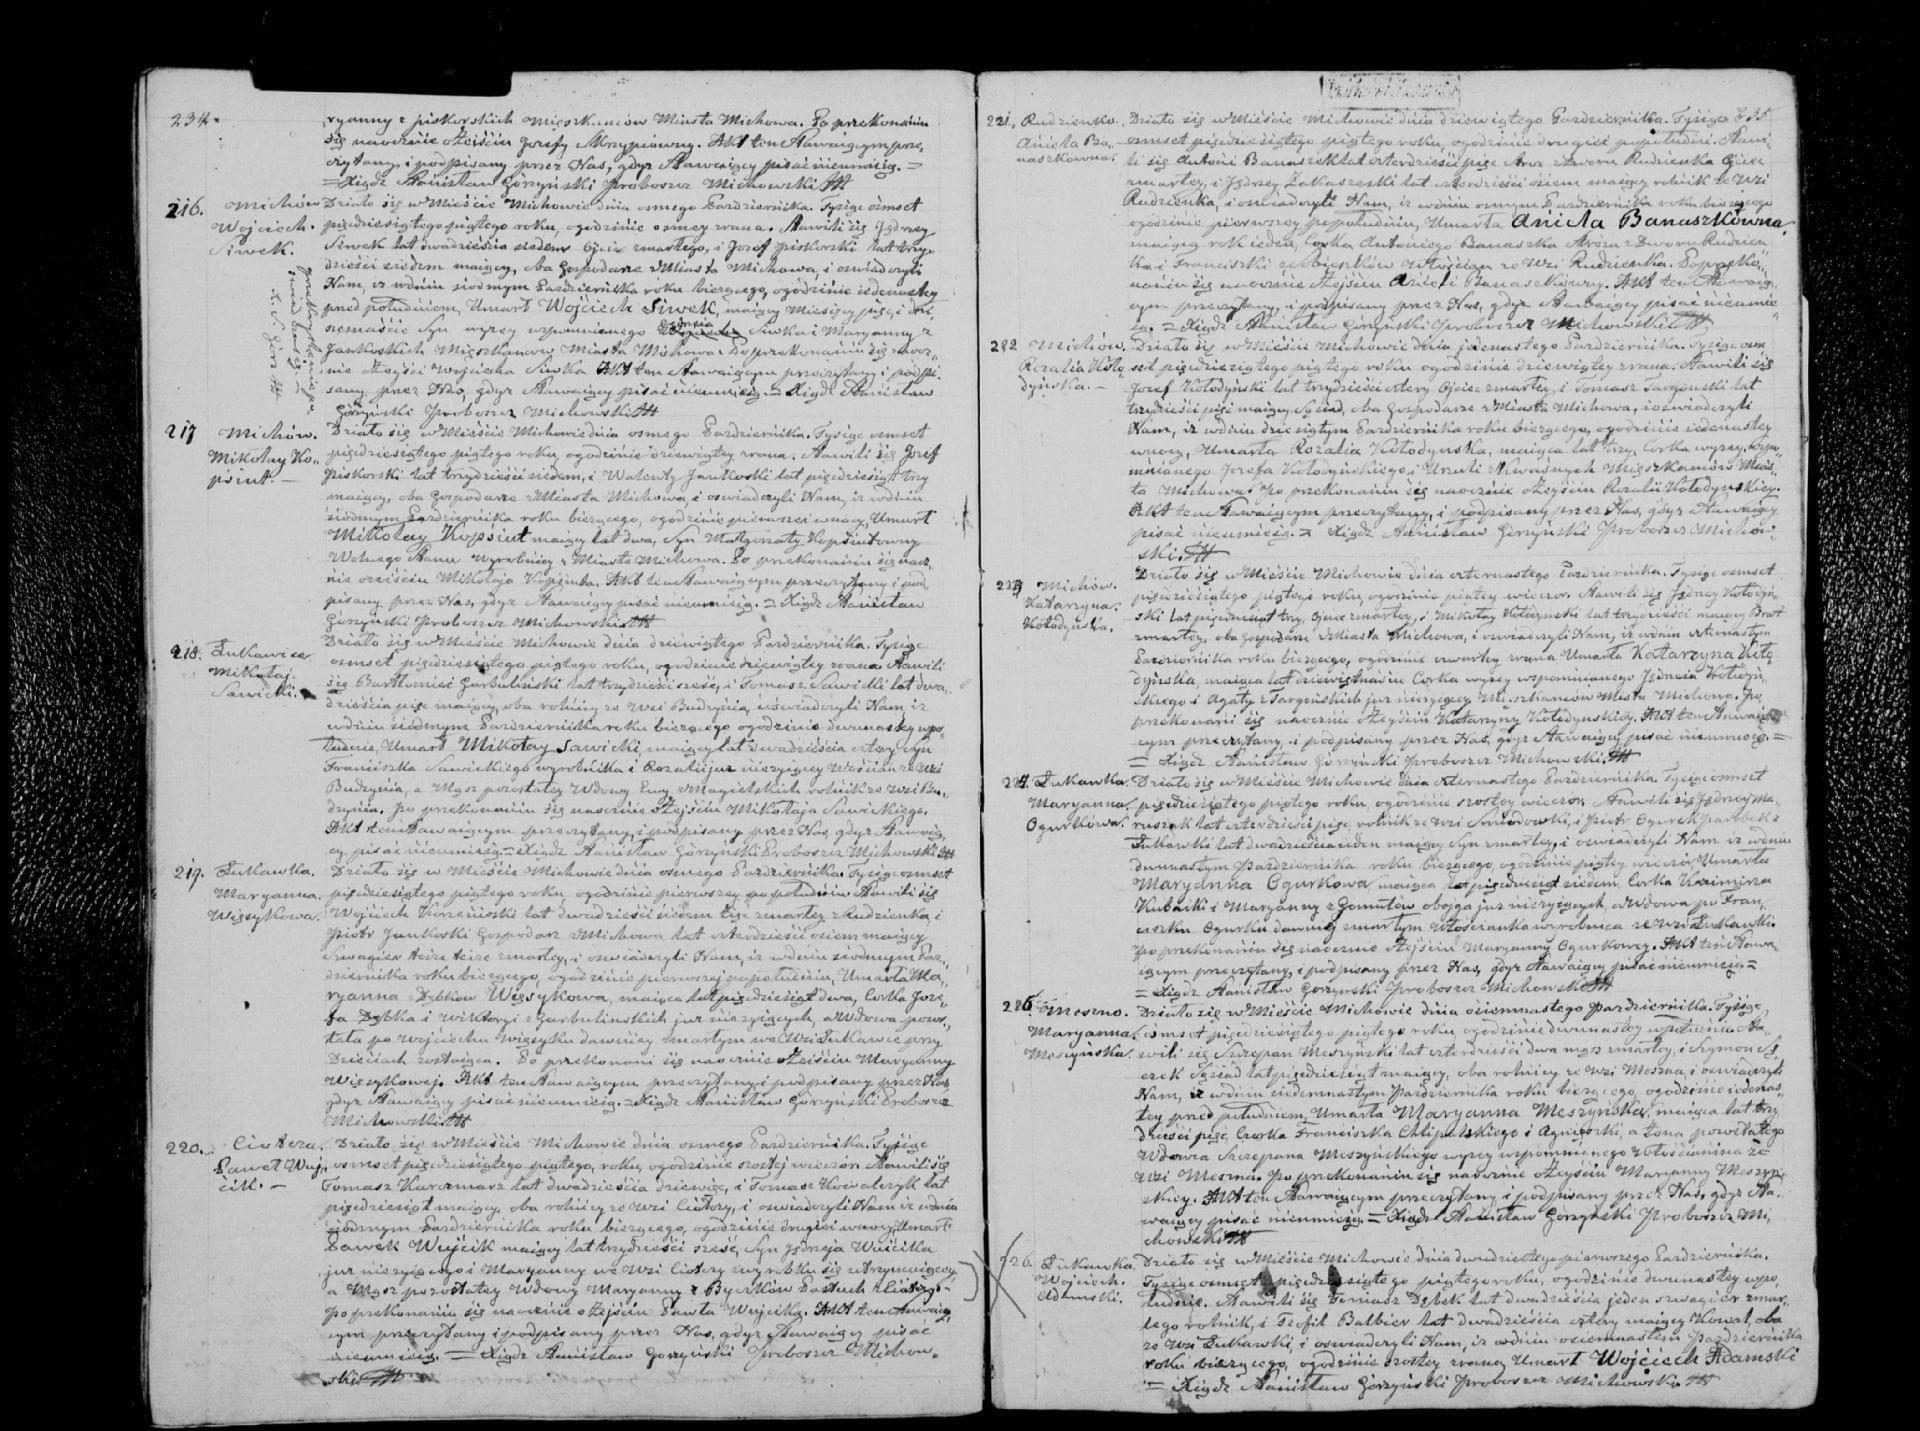 234.
ryanny z Piskorskich Mięszkańców Miasta Michowa. Po przekonaniu
się naocznie o Zeiściu Jozefy Akt ten Stawaiącym prze„
czytany i podpisany przez Nas, gdyż Stawaiący pisać nieumieią. =
= Xiądz Stanisław Górzyński Proboszcz Michowski
216. Michów
Wojciech
Siwek.
Działo się w Mieście Michowie dnia osmego Pazdziernika. Tysiąc osmset
pięćdziesiątego piątego roku, ogodzinie osmey zrana. Stawili się Jędrzey
Siwek lat dwadzieścia siedem Ojciec zmartego, i Jozef Piskorski lat trzy„
dzieści siedem maiący, oba Gospodarze z Miasta Michowa, i oswiadczyli
Nam, iż wdniu siodmym Pazdziernika roku bieżącego, ogodzinie iedenastey
przed południem, Umarł Wojciech Siwek, maiący Miesięcy pięć i dni
Syn wyzey wspomnionego Siwka i Maryanny z
Jankoskich Mięszkancow Miasta Michowa. Po przekonaniu się naocz„
nie o Zeiściu Wojciecha Siwka Akt ten Stawaiącym przeczytany i podpi„
sany przez Nas, gdyż Stawaiący pisać nieumieią = Xiądz Stanisław
Górzyński Proboszcz Michowski
217 Michów.
Mikołay Ko„
psiut. —
Działo się w Mieście Michowie dnia osmego Pazdziernika. Tysiąc osmset
pięćdziesiątego piątego roku, ogodzinie dziewiątey zrana. Stawili się Jozef
Piskorski lat trzydzieści siedem, i Walenty Jankoski lat pięćdziesiąt trzy
maiący, oba Gospodarze z Miasta Michowa i oswiadczyli Nam, iż wdniu
siodmym Pazdziernika roku bieżącego, ogodzinie pierwszei wnocy, Umarł
Mikołay Kopsiut maiący lat dwa, Syn Małgorzaty Kopsiutowny
Wolnego Stanu Wyrobnicy z Miasta Michowa. Po przekonaniu się naocz„
nie o zeiściu Mikołaja Kopsiuta. Akt ten Stawaiącym przeczytany i pod„
pisany przez Nas, gdyż Stawaiący pisać nieumieią. = Xiądz Stanisław
Górzyński Proboszcz Michowski
218. Łukawica
Mikołaj
Sawicki.
Działo się w Mieście Michowie dnia dziewiątego Pazdziernika. Tysiąc
osmset pięćdziesiątego piątego roku, ogodzinie dziewiątey zrana Stawili
się Bartłomiei Garbuliński lat trzydzieści sześć, i Tomasz Sawicki lat dwa„
dzieścia pięc maiący, oba rolnicy ze Wsi Budzynia, i oswiadczyli Nam, iż
wdniu siodmym Pazdziernika roku bieżącego ogodzinie dwunastey wpo„
łudnie, Umarł Mikołay Sawicki, maiący lat dwadzieścia cztery Syn
Franciszka Sawickiego wyrobnika i Rozalii już nieżyiącey Włościan ze Wsi
Budzynia, a Mąż pozostałey Wdowy Ewy z rolnik ze Wsi Bu„
dzynia. Po przekonaniu się naocznie o Zeiściu Mikołaja Sawickiego.
Akt ten Stawaiącym przeczytany i podpisany przez Nas, gdyż Stawaią„
cy pisać nieumieią. = Xiądz Stanisław Górzyński Proboszcz Michowski
219. Łukawka.
Maryanna
Więsykowa.
Działo się w Mieście Michowie dnia osmego Pazdziernika. Tysiąc osmset
pięćdziesiątego piątego roku, ogodzinie pierwszey po południu Stawili się
Wojciech lat dwadzieści siedem zmarłey z Rudzienka, i
Piotr Jankoski Gospodarz z Michowa lat czterdzieści osiem maiący
Szwagier zmarłey, i oswiadczyli Nam, iż wdniu siodmym Paz„
dziernika roku bieżącego, ogodzinie pierwszej popołudniu, Umarła Ma„
ryanna z Dębkow Więsykowa, maiąca lat pięćdziesiąt dwa, Corka Joze„
fa Dębka i Wiktoryi z Garbulinskich już nieżyiących, a Wdowa pozos„
tała po Wojciechu Więsyku dawniey zmartym we Wsi Łukawce przy
Dzieciach zostaiąca. Po przekonaniu się naocznie o Zeiściu Maryanny
Więsykowej. Akt ten Stawaiącym przeczytany i podpisany przez Nas
gdyż Stawaiący pisać nieumieią. = Xiądz Stanisław Górzyński Proboszcz
Michowski
220. Ciotcza.
Paweł Wuj„
cik. —
Działo się w Mieście Michowie dnia osmego Pazdziernika. Tysiąc
osmset pięćdziesiątego piątego, roku, ogodzinie szostej wieczór Stawili się
Tomasz Karczmarz lat dwadzieścia dziewięć, i Tomasz Kowalczyk lat
pięćdziesiąt maiący, oba rolnicy ze Wsi Ciotczy, i oswiadczyli Nam iż wdniu
siodmym Pazdziernika roku bieżącego, ogodzinie drugiei wnocy, Umarł
Paweł Wujcik maiący lat trzydzieści sześć, Syn Jędrzeja Wujcika
już nieżyiącego i Maryanny we Wsi Ciotczy zwyrobku się utrzymuiącey
a Mąż pozostałey Wdowy Maryanny z Byczków Pastuch z Ciotczy.
Po przekonaniu się naocznie o Zejściu Pawła Wujcika. Akt ten Stawaią„
cym przeczytany i podpisany przez Nas, gdyż Stawaiący pisać
nieumieią. = Xiądz Stanisław Górzyński Proboszcz Michow„
ski
221. Rudzienko.
Aniela Ba„
naszkowna.
Działo się w Mieście Michowie dnia dziewiątego Pazdziernika. Tysiąc 235
osmset pięćdziesiątego piątego roku, ogodzinie drugiei popołudniu. Stawi„
li się Antoni Banaszek lat czterdzieści pięć Stroz z Dworu Rudzienka Ojciec
zmarłey, i Jędrzey Zakaszeski lat czterdzieści osiem maiący rolnik ze Wsi
Rudzienka, i oswiadczyli Nam, iż wdniu osmym Pazdziernika roku bieżącego
ogodzinie pierwszey popołudniu, Umarła Aniela Banaszkówna
maiąca rok ieden, Corka Antoniego Banaszka Stroza z Dworu Rudzien„
ka i Franciszki Włościan ze Wsi Rudzienka. Po przeko„
naniu się naocznie o Zejściu Anieli Banaszkówny. Akt ten Stawaią„
cym przeczytany, i podpisany przez Nas, gdyż Stawaiący pisać nieumie„
ią. = Xiądz Stanisław Górzyński Proboszcz Michowski
222 Michów.
Rozalia Koło„
dyńska. —
Działo się w Mieście Michowie dnia jedenastego Pazdziernika. Tysiąc osm„
set pięćdziesiątego piątego roku ogodzinie dziewiątey zrana. Stawili się
Jozef Kołodyński lat trzydzieści cztery Ojciec zmarłey, i Tomasz Targoński lat
trzydzieści pięć maiący Sąsiad, oba Gospodarze z Miasta Michowa, i oswiadczyli
Nam, iż wdniu dziesiątym Pazdziernika roku bieżącego, ogodzinie iedenastey
wnocy, Umarła Rozalia Kołodynska, maiąca lat trzy, Corka wyzey wspo„
mnianego Jozefa Kołodyńskiego, i Urszuli Mięszkańców Mias„
ta Michowa. Po przekonaniu się naocznie o Zeyściu Rozalii Kołodynskiey.
Akt ten Stawaiącym przeczytany, i podpisany przez Nas, gdyż Stawaiący
pisać nieumieią. = Xiądz Stanisław Górzyński Proboszcz Michow„
ski.
223 Michów.
Katarzyna
Kołodyńska.
Działo się w Mieście Michowie dnia czternastego Pazdziernika. Tysiąc osmset
pięćdziesiątego piątego roku, ogodzinie piątey wieczor. Stawili się Jędrzey Kołodyń„
ski lat pięćdziesiąt trzy, Ojciec zmarłey, i Mikołay Kołodyński lat trzydzieści maiący Brat
zmarłey, oba Gospodarze z Miasta Michowa, i oswiadczyli Nam, iż wdniu czternastym
Pazdziernika roku bieżącego, ogodzinie czwartey zrana Umarła Katarzyna Koło„
dyńska, maiąca lat dziewiętnaście Corka wyzey wspomnianego Jędrzeia Kołodyń„
skiego i Agaty z Targońskich już nieżyiącey Mieszkańców Miasta Michowa. Po
przekonaniu się naocznie o Zeyściu Katarzyny Kołodynskiey. Akt ten Stawaią„
cym przeczytany, i podpisany przez Nas, gdyż Stawaiący pisać nieumieią. =
= Xiądz Stanisław Górzyński Proboszcz Michowski.
224. Łukawka.
Maryanna
Ogurkówa.
Działo się w Mieście Michowie dnia czternastego Pazdziernika. Tysiąc osmset
pięćdziesiątego piątego roku, ogodzinie szostey wieczór. Stawili się Jędrzey Ma„
ruszak lat czterdzieści pięć rolnik ze Wsi i Piotr Ogurek Parobek z
Łukawki lat dwadzieścia ieden maiący Syn zmarłey, i oswiadczyli Nam iż wdniu
dwunastym Pazdziernika roku bieżącego ogodzinie piątey wieczór Umarła
Maryanna Ogurkowa maiąca lat pięćdziesiąt siedem, Corka Kazimirza
Kubacki i Maryanny z Gomułów obojga już nieżyiących, a Wdowa po Fran„
ciszku Ogurku dawniey zmartym Włościanka wyrobnica ze Wsi Łukawki.
Po przekonaniu się naocznie o Zejściu Maryanny Ogurkowey. Akt ten Stawa„
iącym przeczytany, i podpisany przez Nas, gdyż Stawaiący pisać nieumieią =
= Xiądz Stanisław Górzynski Proboszcz Michowski
225 Meszno.
Maryanna
Meszyńska.
Działo się w Mieście Michowie dnia osiemnastego Pazdziernika. Tysiąc
osmset pięćdziesiątego piątego roku ogodzinie dwunastey wpołudnie Sta„
wili się Szczepan Meszyński lat czterdzieści dwa mąż zmarłey, i Szymon
Sąsiad lat pięćdziesiąt maiący, oba rolnicy ze Wsi Meszna, i oswiadczyli
Nam, iż wdniu siedemnastym Pazdziernika roku bieżącego, ogodzinie iedenas„
tey przed południem, Umarła Maryanna Meszyńska, maiąca lat trzy„
dzieści pięć, Corka Franciszka Chlipalskiego i Agnieszki, a Żona pozostałego
Wdowca Szczepana Meszyńskiego wyzey wspomnionego Włościanina ze
Wsi Meszna. Po przekonaniu się naocznie o Zeyściu Maryanny Meszyń„
skiey. Akt ten Stawaiącym przeczytany i podpisany przez Nas, gdyż Sta„
waiący pisać nieumieią. = Xiądz Stanisław Górzyński Proboszcz Mi„
chowski
226. Łukawka
Wojciech
Adamski.
Działo się w Mieście Michowie dnia dwudziestego pierwszego Pazdziernika.
Tysiąc osmset pięćdziesiątego piątego roku, ogodzinie dwunastey wpo„
łudnie. Stawili się Dębek lat dwadzieścia jeden szwagier zmar„
łego rolnik, i Teofil Balbier lat dwadzieścia cztery maiący Kowal, oba
ze Wsi Łukawki, i oswiadczyli Nam, iż wdniu osiemnastem Pazdziernika
roku bieżącego, ogodzinie szostey zrana, Umarł Wojciech Adamski
= Xiądz Stanisław Górzyński Proboszcz Michowski